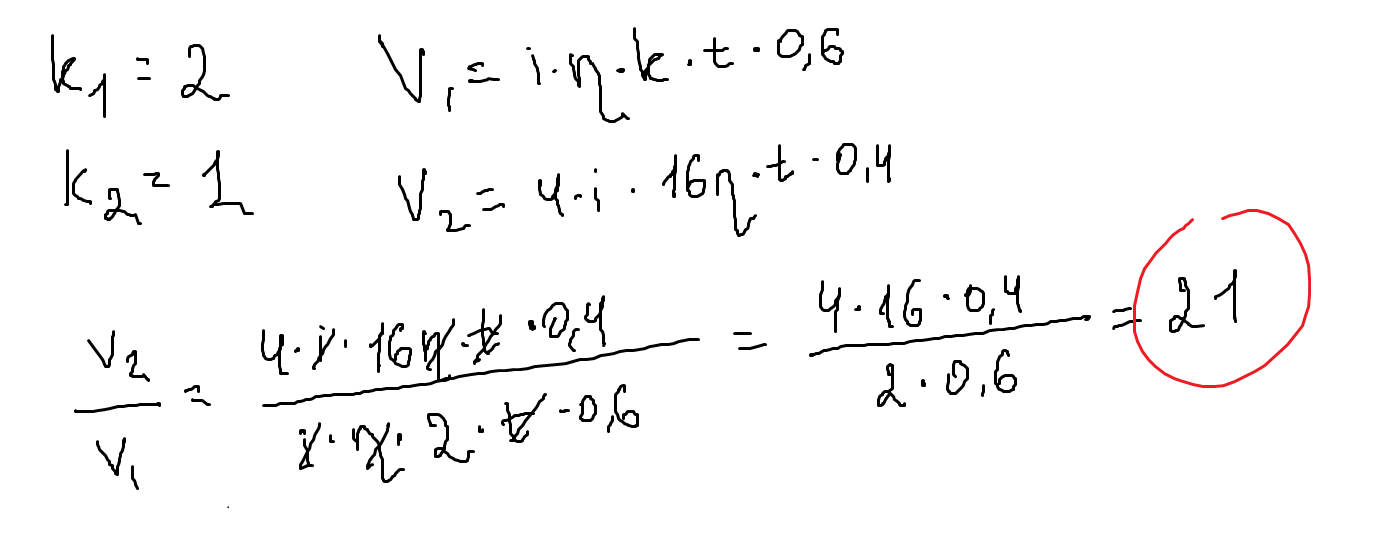 k₁ = 2 V₁ = i·η·k·t·0,6
k₂ = 1 V₂ = 4·i·16η·t·0,4
V₂/V₁ = (4·i·16η·t·0,4)/(i·η·2·t·0,6) = (4·16·0,4)/(2·0,6) = 21